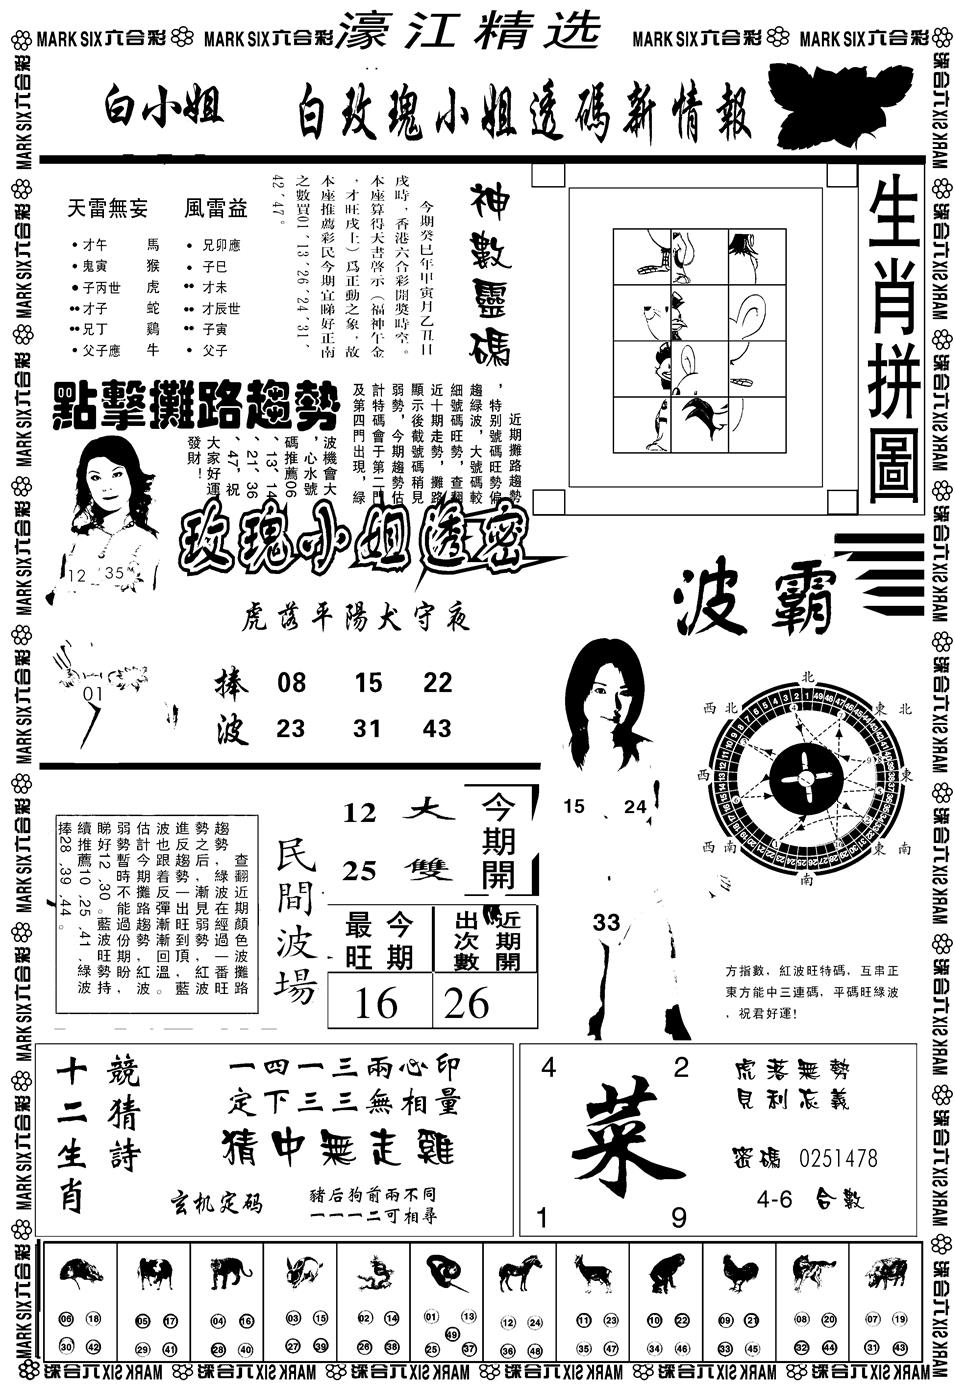 MARK SIX六合彩 MARK SIX六合彩 濠江精选 MARK SIX六合彩 MARK SIX六合彩
白小姐 白玫瑰小姐透碼新情報
天雷無妄 風雷益
• 才午 馬 • 兄卯應
• 鬼寅 猴 • 子巳
• 子丙世 虎 •• 才未
•• 才子 蛇 •• 才辰世
•• 兄丁 鷄 •• 子寅
• 父子應 牛 • 父子
神數靈碼
今期癸巳年甲寅月乙丑日
戌時，香港六合彩開獎時空。
本座算得天書啓示（福神午金
，才旺戌上）爲正動之象，故
本座推薦彩民今期宜睇好正南
之數買01、13、26、24、31、
42、47。
生肖拼圖
點擊攤路趨勢
近期攤路趨勢
，特别號碼旺勢偏
趨綠波，大號碼較
細號碼旺勢，查翻
近十期走勢，攤路
顯示後截號碼稍見
弱勢，今期趨勢估
計特碼會于第二門
及第四門出現，綠
波機會大
，心水號
碼推薦06
、13、14
、21、36
、47，祝
大家好運
發財！
12 35
01
玫瑰小姐透密
虎落平陽犬守夜
捧 08 15 22
波 23 31 43
波霸
北
西北 東北
西 東
西南 東南
南
15 24
33
方指數，紅波旺特碼，互串正
東方能中三連碼，平碼旺綠波
，祝君好運！
查翻近期顏色波攤路
趨勢，綠波在經過一番旺
勢之后，漸見弱勢，紅波
進反趨勢一出旺到頂，藍
波也跟着反彈漸漸回溫。
估計今期攤路趨勢紅波
弱勢暫時不能過份期盼，
睇好12、30。藍波旺勢持
續推薦10、25、41、綠波
捧28、39、44。
民間波場
12 大
25 雙
今期開
今期最旺 近期開出次數
16 26
十二生肖
競猜詩
一四一三兩心印
定下三三無相量
猜中無走雞
玄机定码
豬后狗前兩不同
一一一二可相尋
4 2
菜
1 9
虎落無勢
見利忘義
密碼 0251478
4-6 合數
06 18 05 17 04 16 03 15 02 14 01 13 12 24 11 23 10 22 09 21 08 20 07 19
49
30 42 29 41 28 40 27 39 26 38 25 37 36 48 35 47 34 46 33 45 32 44 31 43
MARK SIX六合彩 MARK SIX六合彩 MARK SIX六合彩 MARK SIX六合彩 MARK SIX六合彩 MARK SIX六合彩